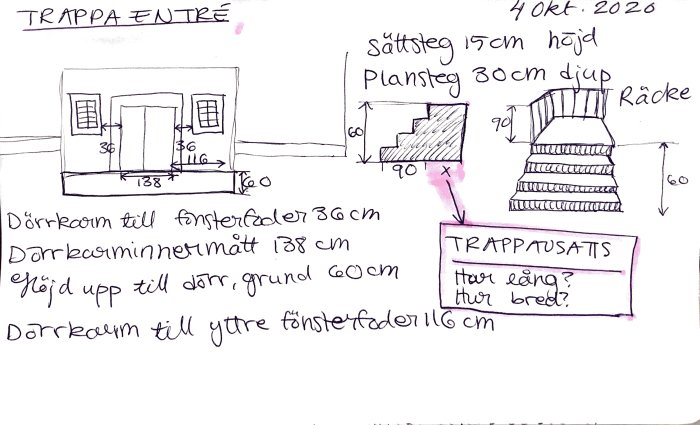 TRAPPA ENTRÉ
4 Okt. 2020
Sättsteg 15cm höjd
Plansteg 30cm djup
Räcke
36
36
116
138
60
60
90
x
90
60
Dörrkarm till fönsterfoder 36cm
Dörrkarminnermått 138 cm
Höjd upp till dörr, grund 60cm
Dörrkarm till yttre fönsterfoder 116 cm
TRAPPAVSATS
Hur lång?
Hur bred?